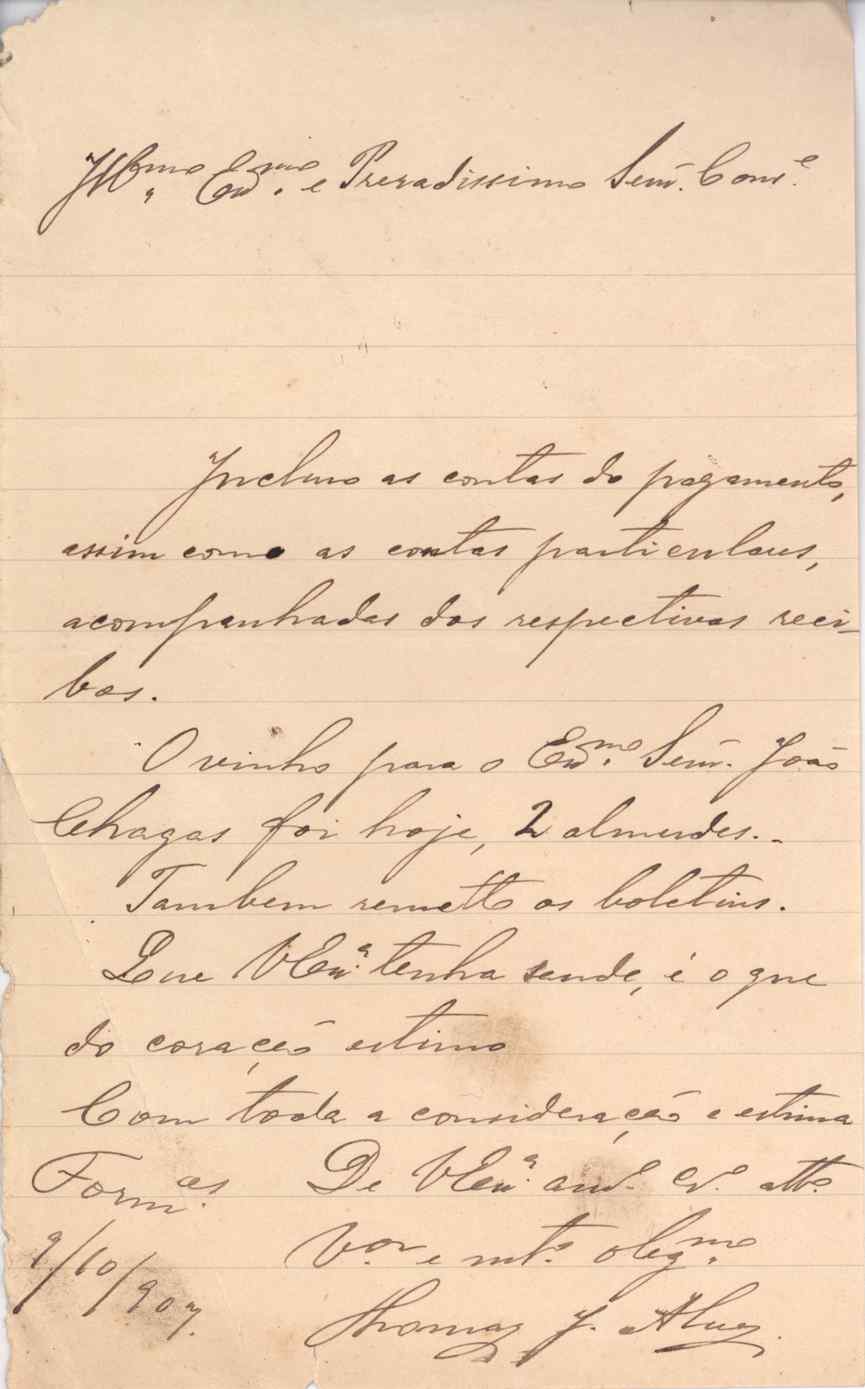 Illmo. Exmo. e Prezadissimo Senr. Conse.
Incluso as contas do pagamento,
assim como as contas particulares,
acompanhadas dos respectivos reci-
bos.
O vinho para o Exmo. Senr. João
Chagas foi hoje, 2 almudes.
Tambem remetto os boletins.
Que V Exa. tenha saude, é o que
do coração estimo
Com toda a consideração e estima
De V Exa. amo. cro. atto.
Vor. e mto. obgmo.
9/10/907.
Thomaz J. Alves